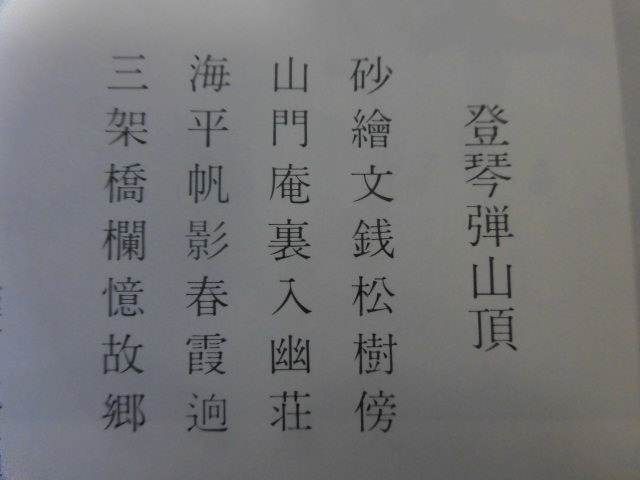 登琴弾山頂
砂繪文銭松樹傍
山門庵裏入幽荘
海平帆影春霞逈
三架橋欄憶故郷